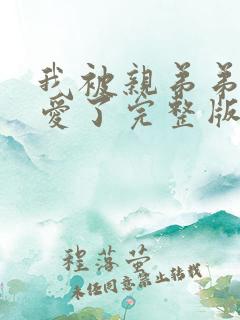 我被親弟弟
愛了完整版
程落萤
未經同意禁止轉載